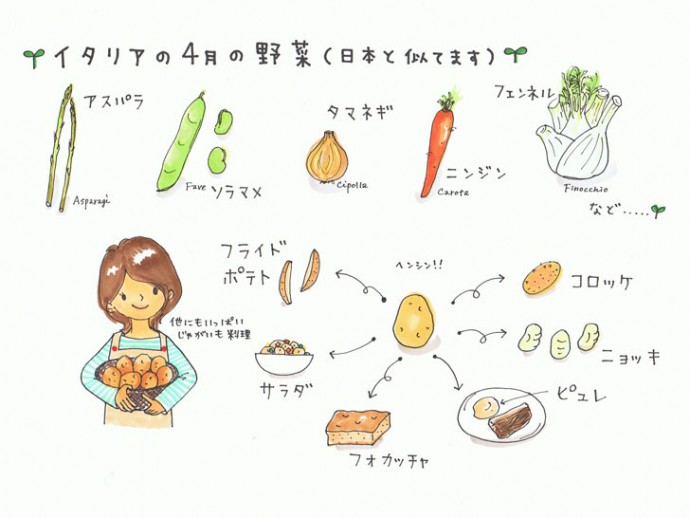 イタリアの4月の野菜(日本と似てます)
アスパラ
Asparagi
Fave ソラマメ
タマネギ
Cipolla
ニンジン
Carota
フェンネル
Finocchio
など.....
フライド
ポテト
ヘンシン!!
コロッケ
他にもいっぱい
じゃがいも料理
ニョッキ
サラダ
ピュレ
フォカッチャ